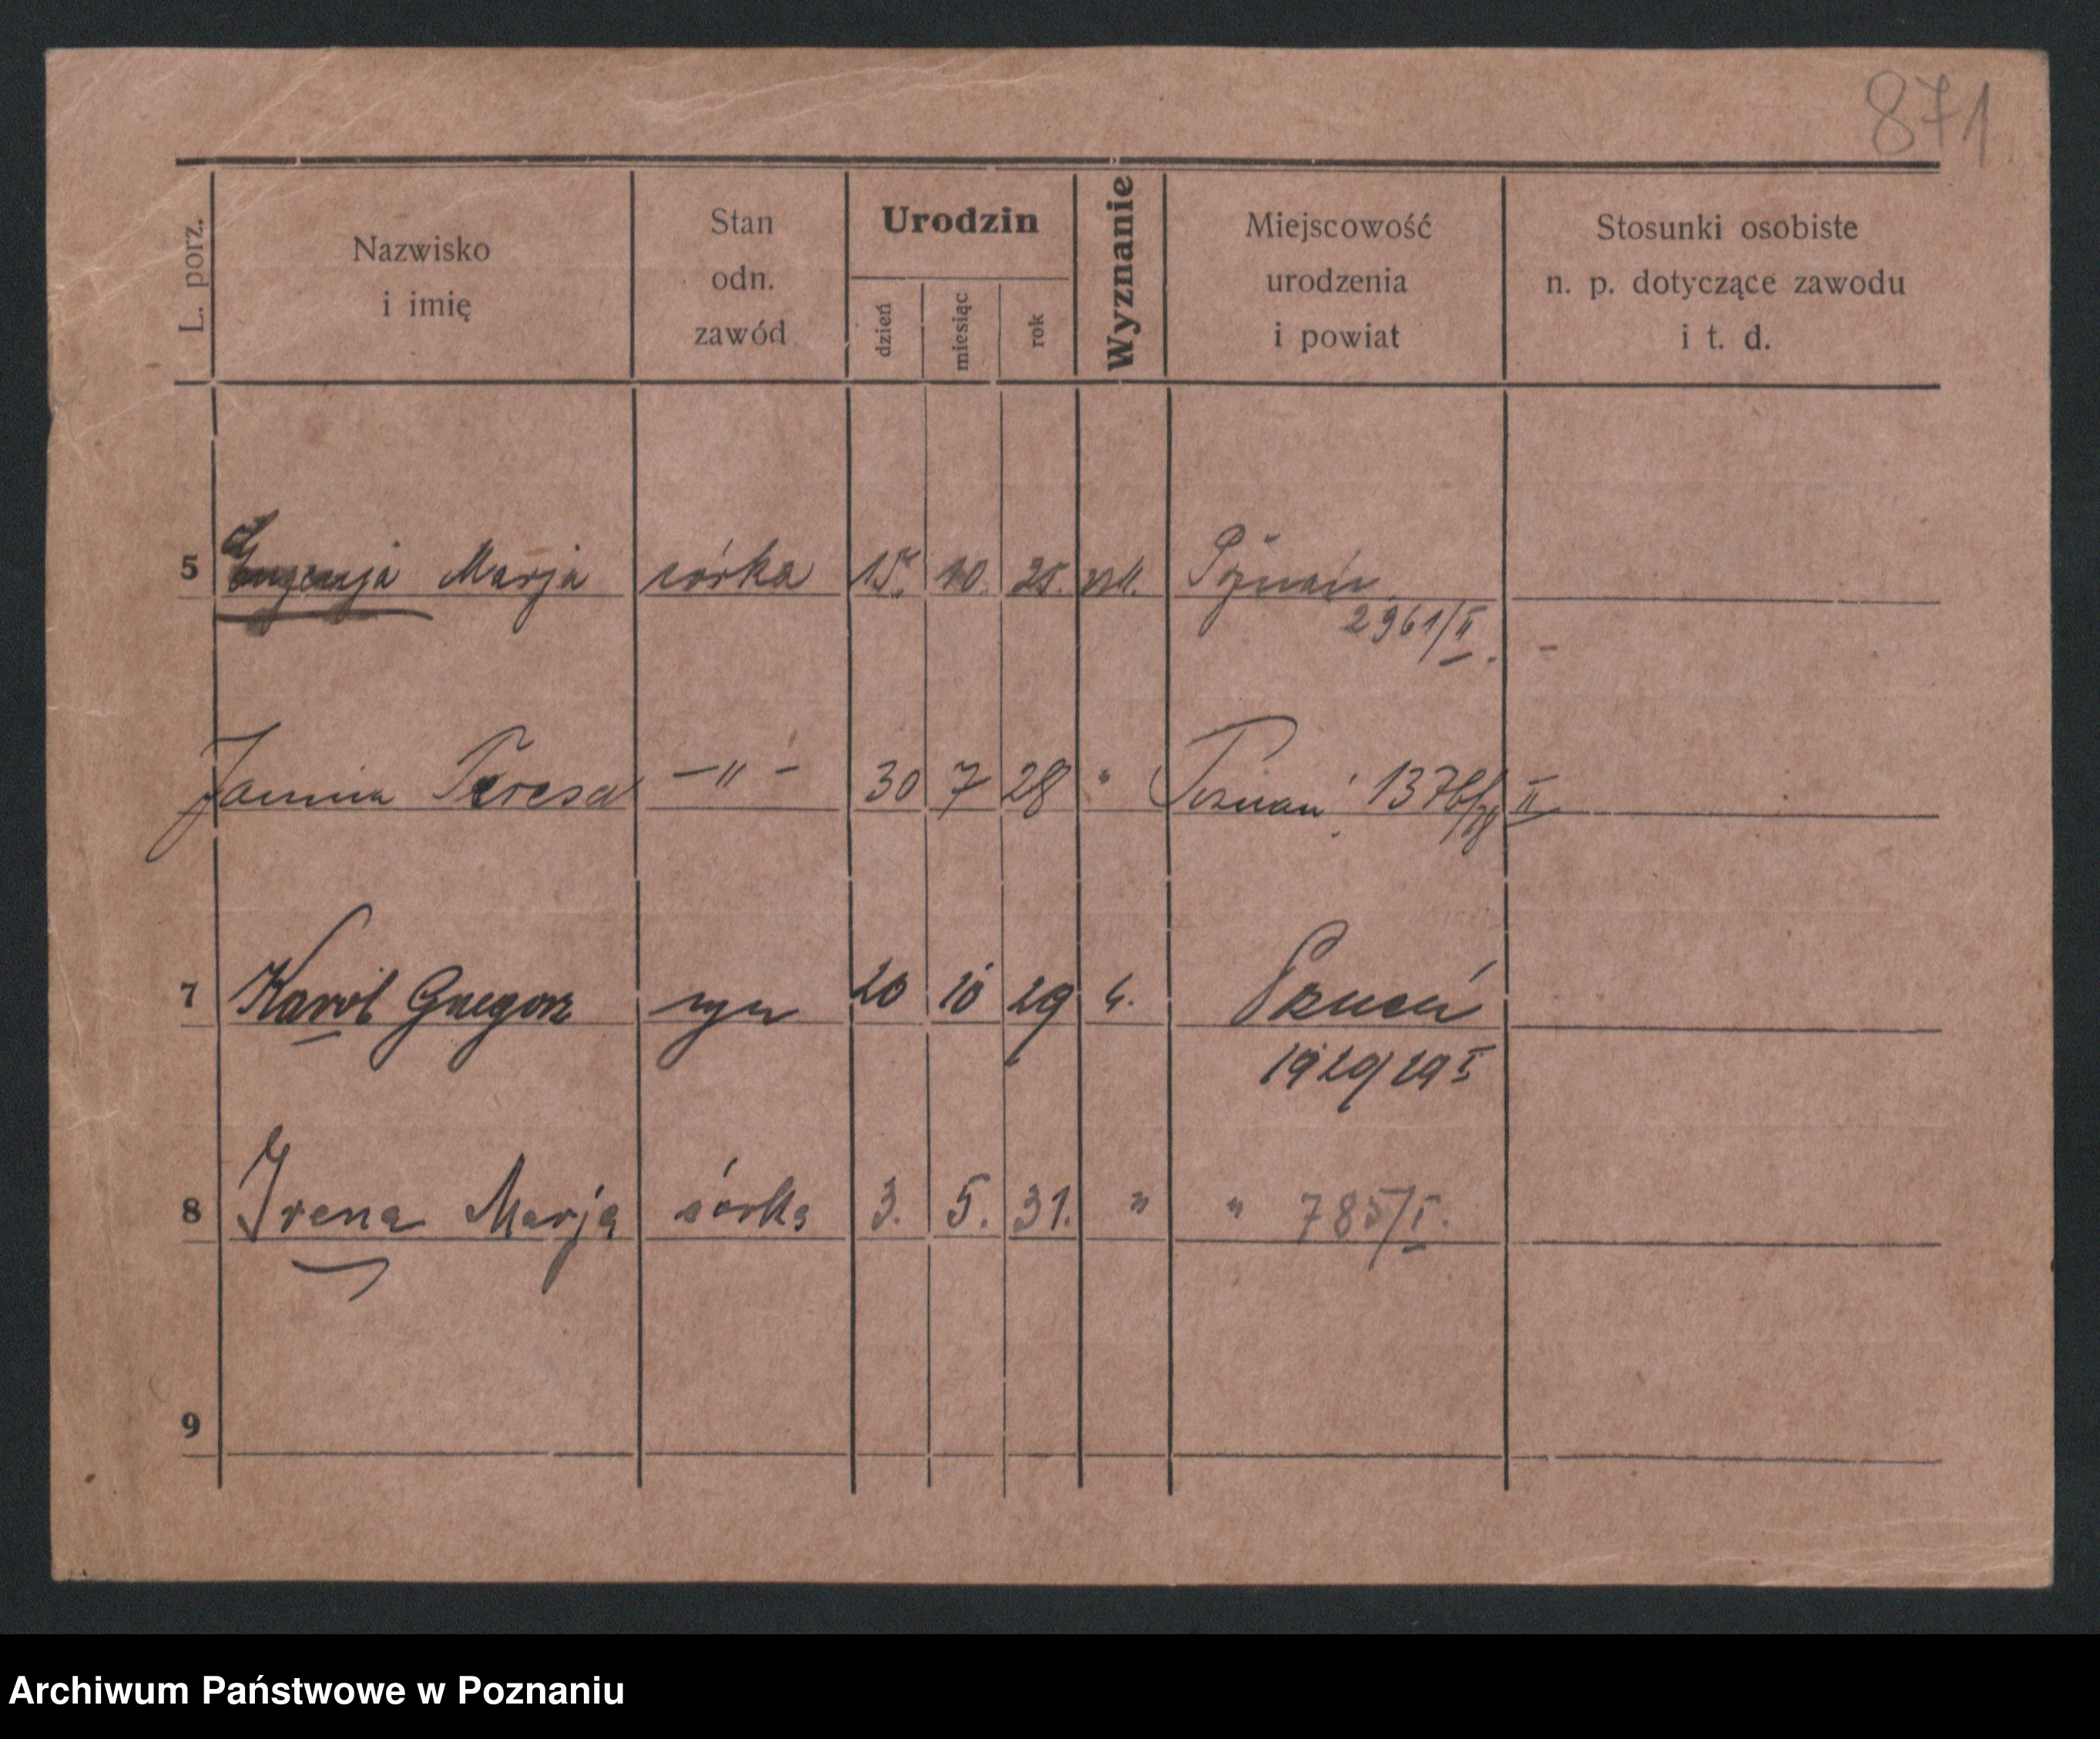 871
L. porz.
Nazwisko
i imię
Stan
odn.
zawód
Urodzin
dzień
miesiąc
rok
Wyznanie
Miejscowość
urodzenia
i powiat
Stosunki osobiste
n. p. dotyczące zawodu
i t. d.
5 Marja córka 15. 10. 25. Poznań
2961/II.
Janina Teresa —"— 30 7 28 " Poznań 1376/28 II
7 Karol Grzegorz syn 20 10 29 Poznań
1929/29 I
8 Irena Marja córka 3. 5. 31. " " 785/I.
9
Archiwum Państwowe w Poznaniu